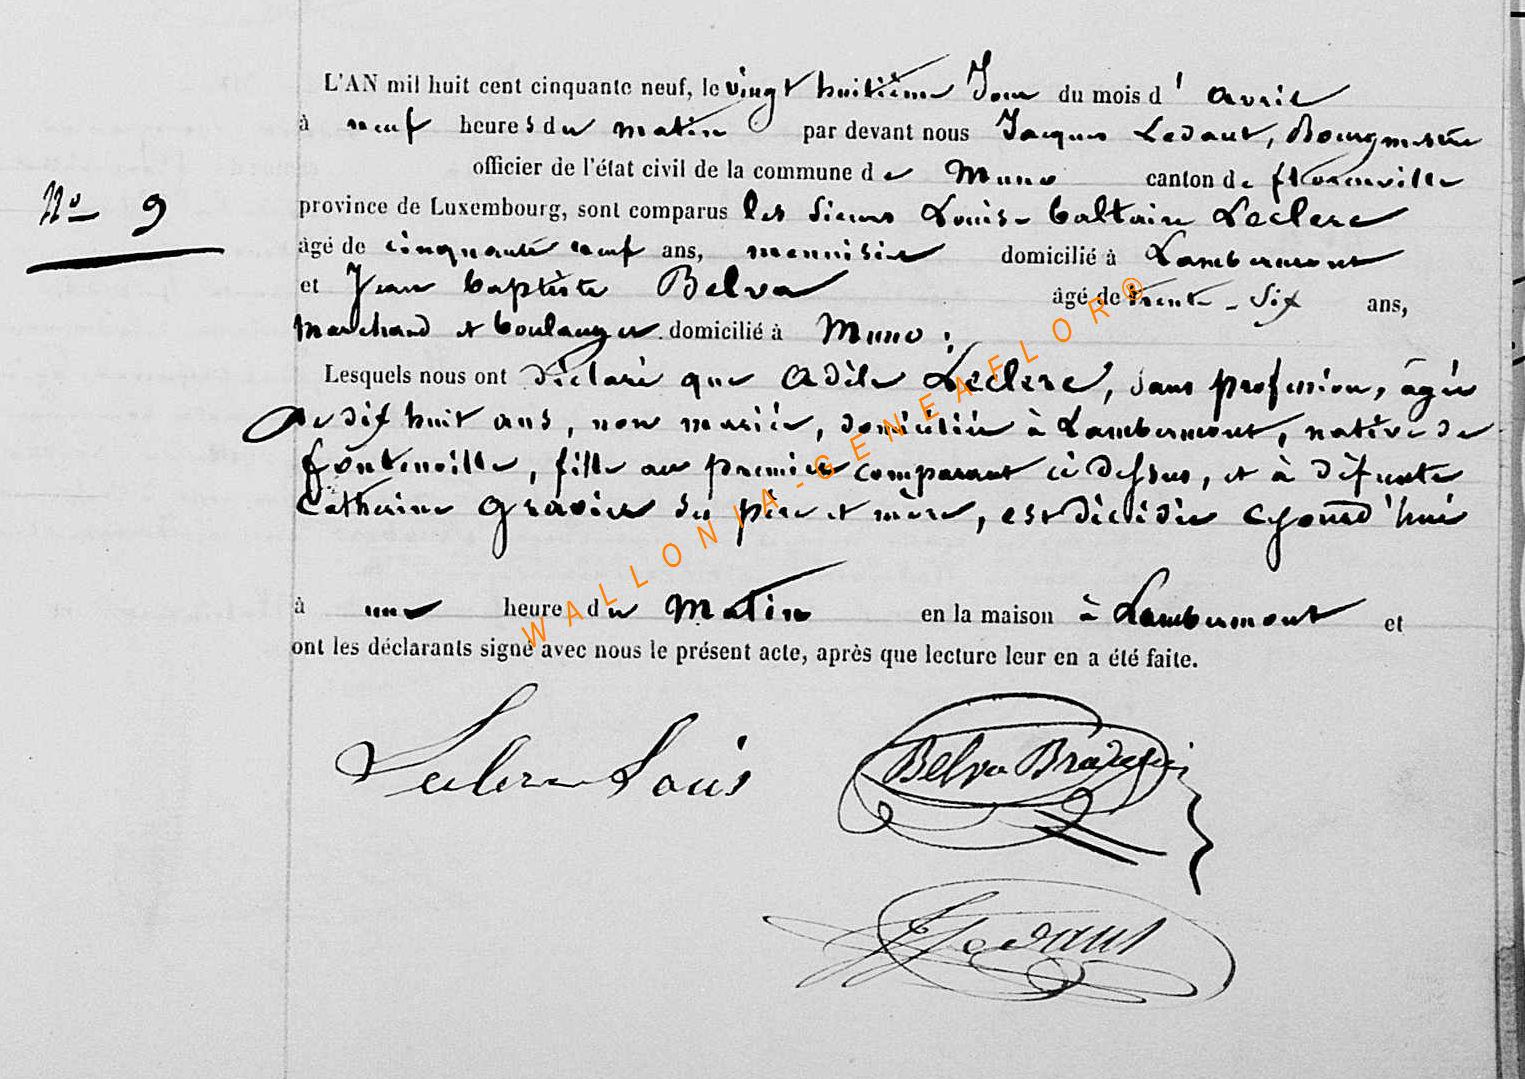 L'AN mil huit cent cinquante neuf, le vingt huitième Jour du mois d' avril
à neuf heures du matin par devant nous Jacques Ledaut, Bourgmestre
officier de l'état civil de la commune de Muno canton de florenville
N° 9
province de Luxembourg, sont comparus les Sieurs Louis-Voltaire Leclerc
âgé de cinquante neuf ans, menuisier domicilié à Lambermont
et Jean baptiste Belva âgé de trente-Six ans,
Marchand et boulanger domicilié à Muno;
Lesquels nous ont déclaré que Adèle Leclerc, sans profession, âgée
de dix huit ans, non mariée, domiciliée à Lambermont, native de
fontenoille, fille au premier comparant ci dessus, et à défunte
Catherine Gravier ses père et mère, est décédée aujourd'hui
à une heure du Matin en la maison à Lambermont et
ont les déclarants signé avec nous le présent acte, après que lecture leur en a été faite.
Leclerc Louis
Belva
J Ledaut
WALLONIA-GENEAFLOR®